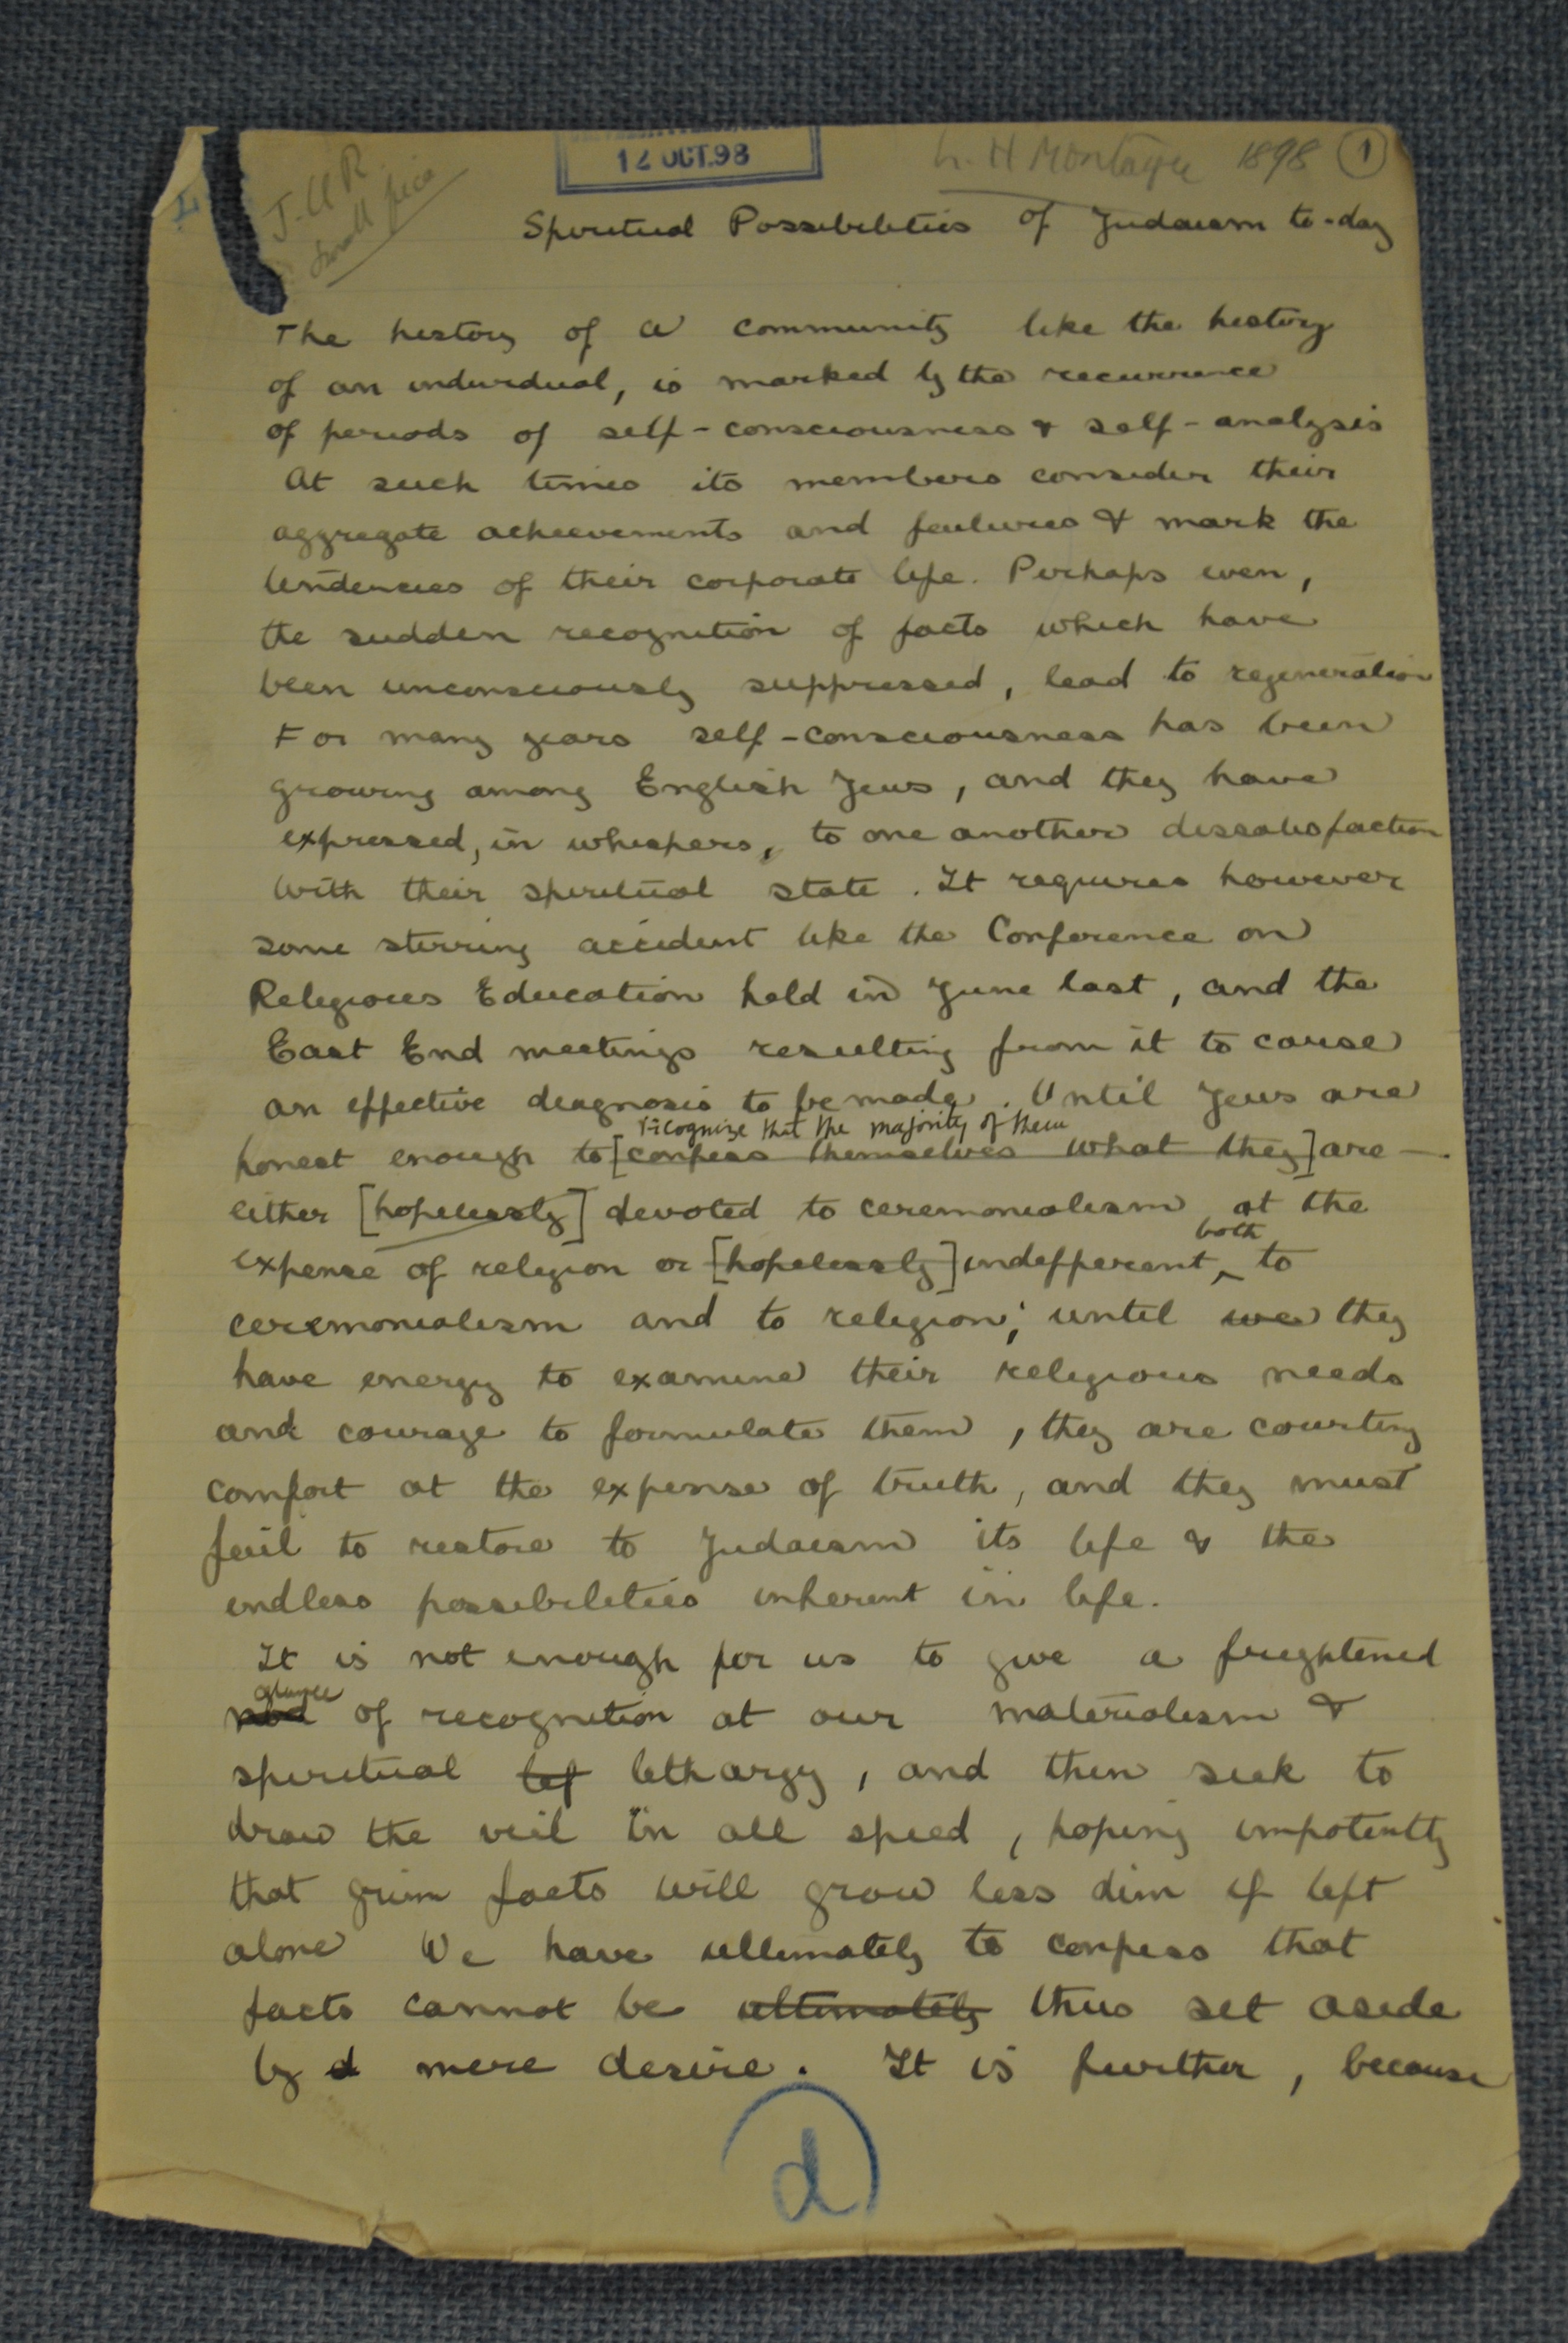 12 OCT.98
L. H Montagu 1898 1
J.Q.R
small pica
Spiritual Possibilities of Judaism to-day
The history of a community like the history
of an individual, is marked by the recurrence
of periods of self-consciousness & self-analysis
At such times its members consider their
aggregate achievements and failures & mark the
tendencies of their corporate life. Perhaps even,
the sudden recognition of facts which have
been unconsciously suppressed, lead to regeneration
For many years self-consciousness has been
growing among English Jews, and they have
expressed, in whispers, to one another dissatisfaction
with their spiritual state. It requires however
some stirring accident like the Conference on
Religious Education held in June last, and the
East End meetings resulting from it to cause
an effective diagnosis to be made. Until Jews are
recognize that the majority of them
honest enough to [confess themselves what they] are —
either [hopelessly] devoted to ceremonialism at the
both
expense of religion or [hopelessly] indifferent to
ceremonialism and to religion; until we they
have energy to examine their religious needs
and courage to formulate them, they are courting
comfort at the expense of truth, and they must
fail to restore to Judaism its life & the
endless possibilities inherent in life.
It is not enough for us to give a frightened
glance
nod of recognition at our materialism &
spiritual lef lethargy, and then seek to
draw the veil in all speed, hoping impotently
that grim facts will grow less dim if left
alone We have ultimately to confess that
facts cannot be ultimately thus set aside
by d mere desire. It is further, because
d